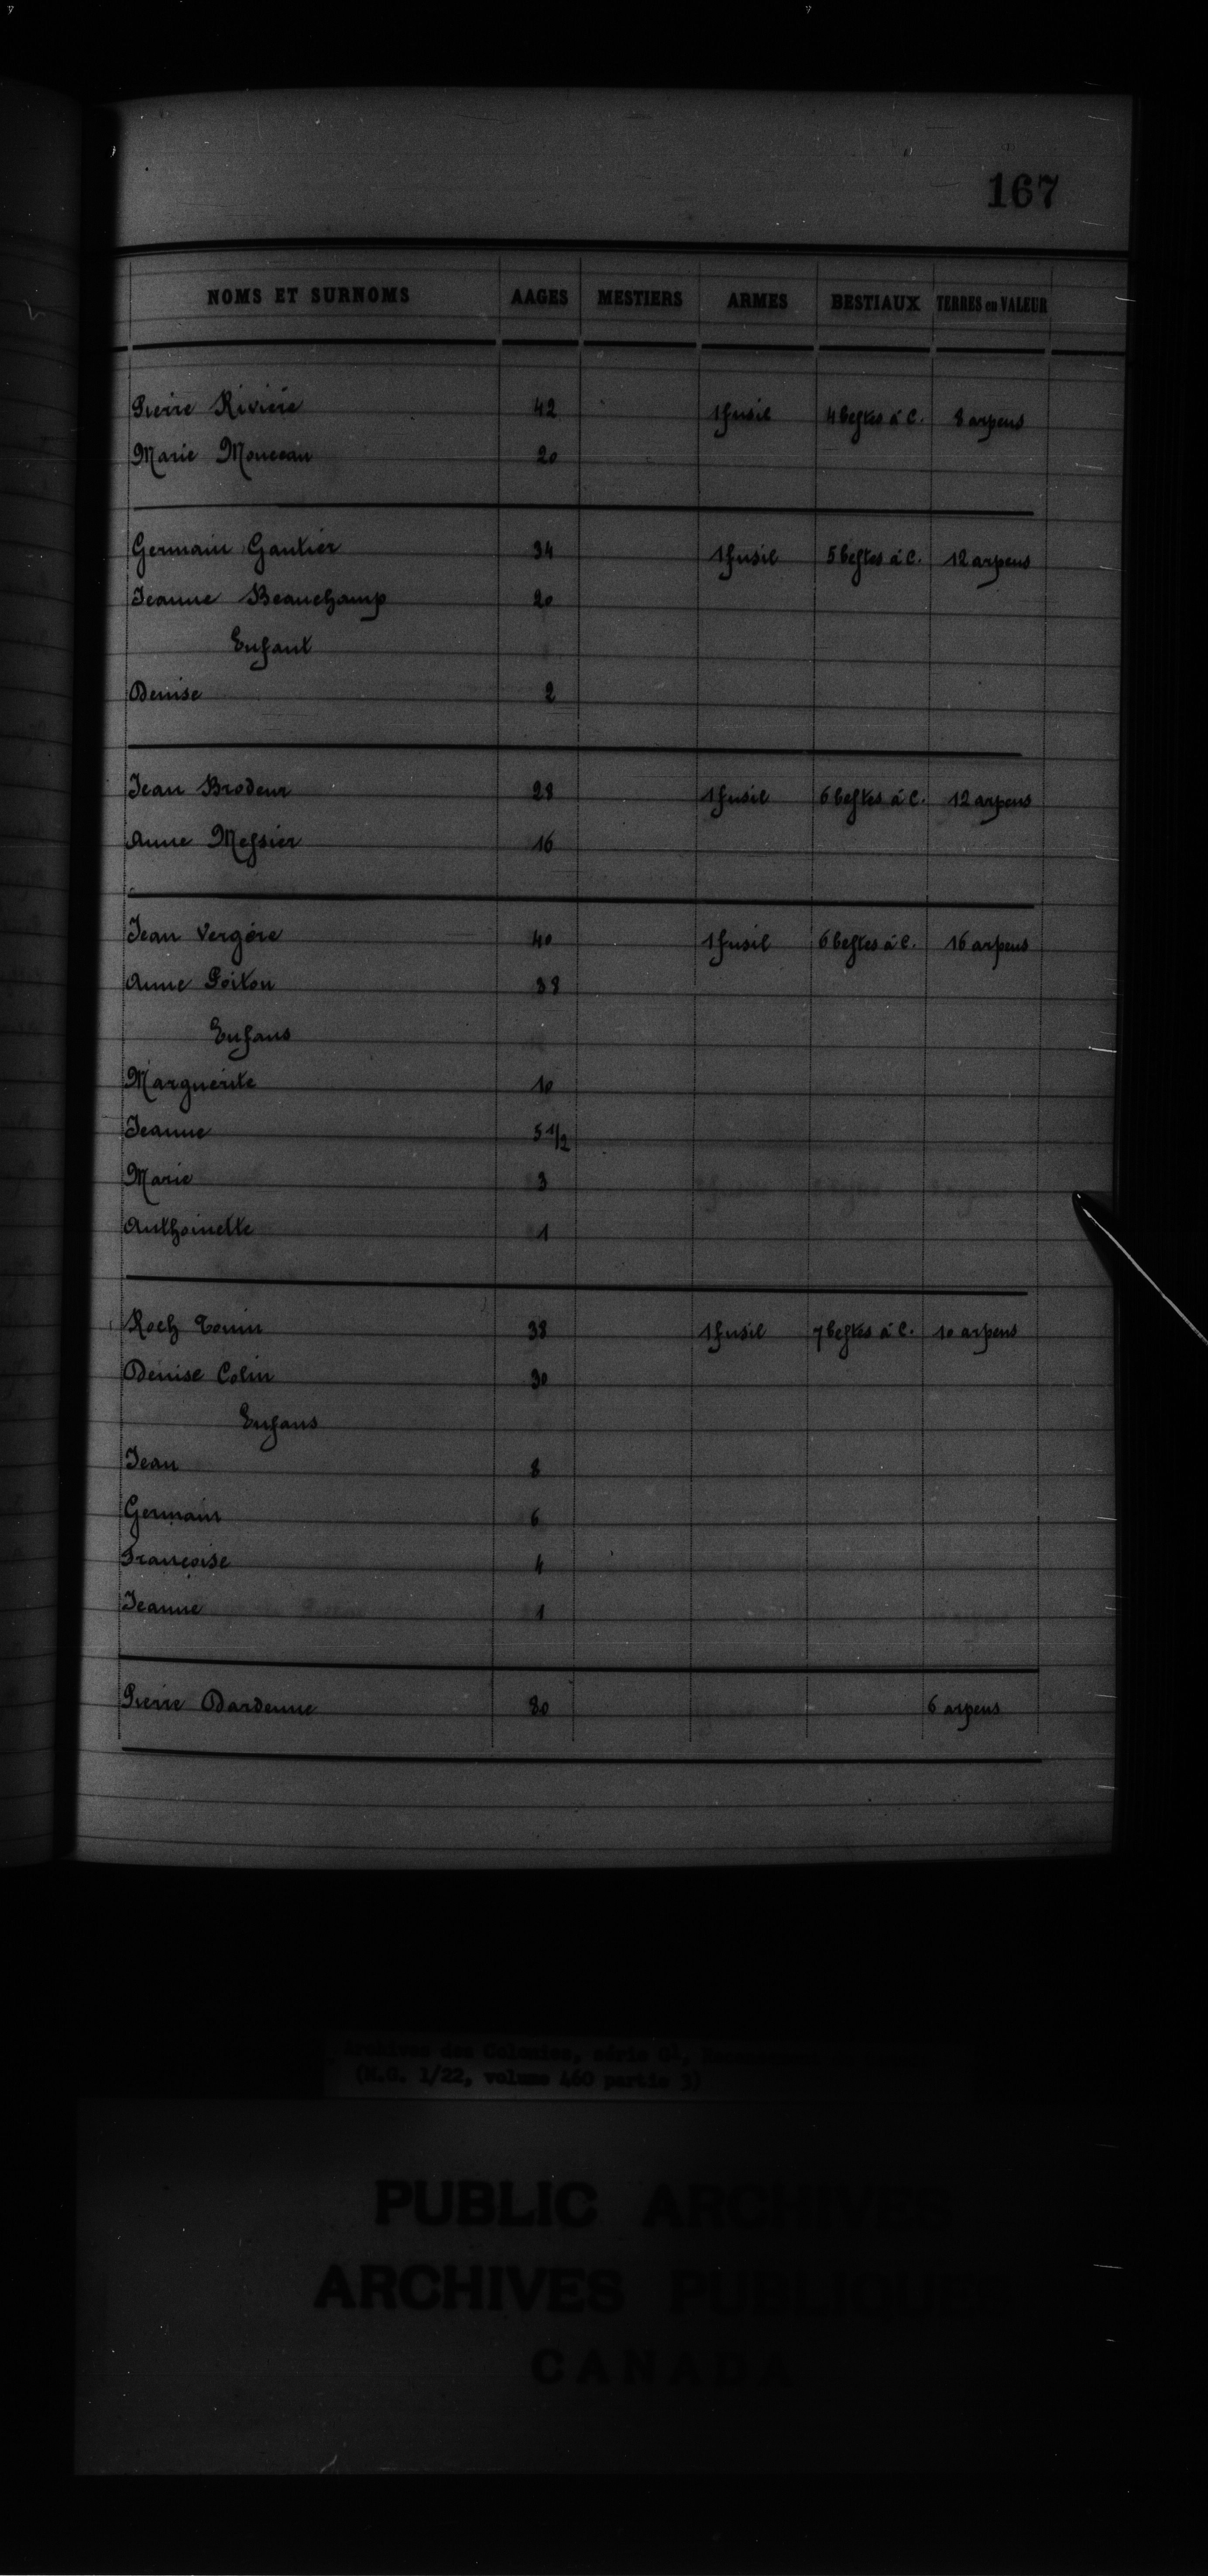 167
NOMS ET SURNOMS AAGES MESTIERS ARMES BESTIAUX TERRES en VALEUR
Pierre Rivière 42 1 fusil 4 bestes à C. 8 arpens
Marie Mouceau 20
Germain Gautier 34 1 fusil 5 bestes à C. 12 arpens
Jeanne Beauchamp 20
Enfant
Denise 2
Jean Brodeur 28 1 fusil 6 bestes à C. 12 arpens
Anne Messier 16
Jean Vergère 40 1 fusil 6 bestes à C. 16 arpens
Anne Poiton 38
Enfans
Marguerite 10
Jeanne 5 1/2
Marie 3
Anthoinette 1
Roch Touin 38 1 fusil 7 bestes à C. 10 arpens
Denise Colin 30
Enfans
Jean 8
Germain 6
Françoise 4
Jeanne 1
Pierre Dardenne 30 6 arpens
Archives des Colonies, série G1,
(M.G. 1/22, volume 460 partie 3)
PUBLIC ARCHIVES
ARCHIVES PUBLIQUES
CANADA